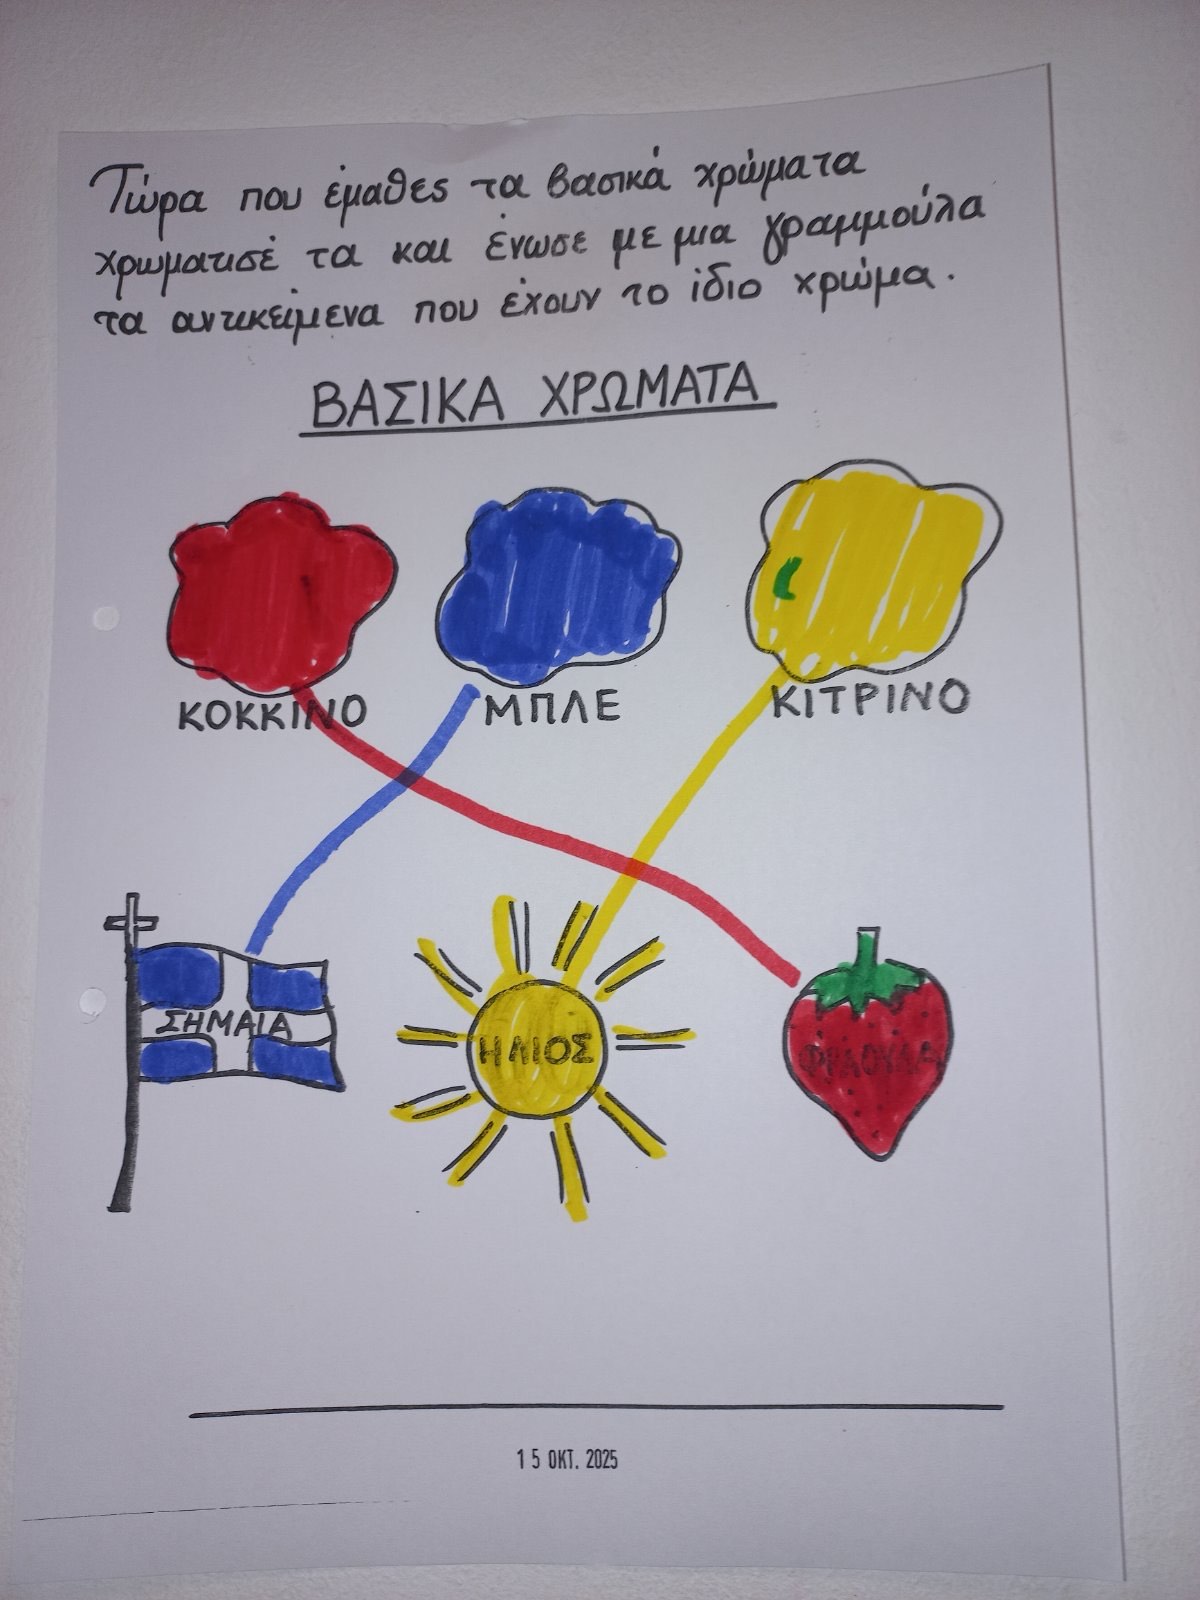 Τώρα που έμαθες τα βασικά χρώματα
χρωματισέ τα και ένωσε με μια γραμμούλα
τα αντικείμενα που έχουν το ίδιο χρώμα.
ΒΑΣΙΚΑ ΧΡΩΜΑΤΑ
ΚΟΚΚΙΝΟ ΜΠΛΕ ΚΙΤΡΙΝΟ
ΣΗΜΑΙΑ ΗΛΙΟΣ ΦΡΑΟΥΛΑ
15 ΟΚΤ. 2025